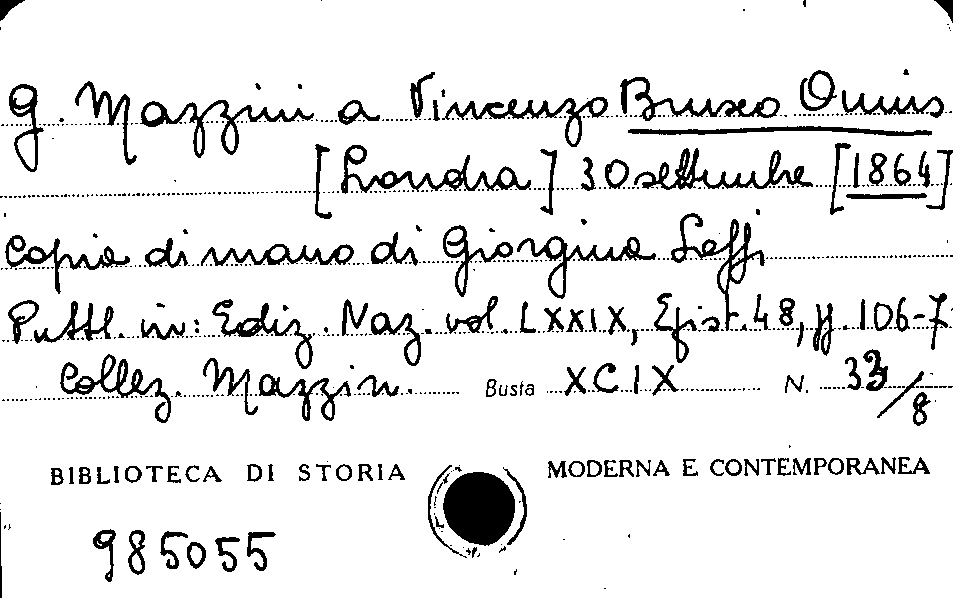 G. Mazzini a Vincenzo Brusco Onnis
[Londra] 30 settembre [1864]
Copia di mano di Giorgina Saffi
Pubbl. in: Ediz. Naz. vol. LXXIX, Epist. 48, pp. 106-7
Collez. Mazzin. Busta XCIX N. 33/8
BIBLIOTECA DI STORIA MODERNA E CONTEMPORANEA
985055